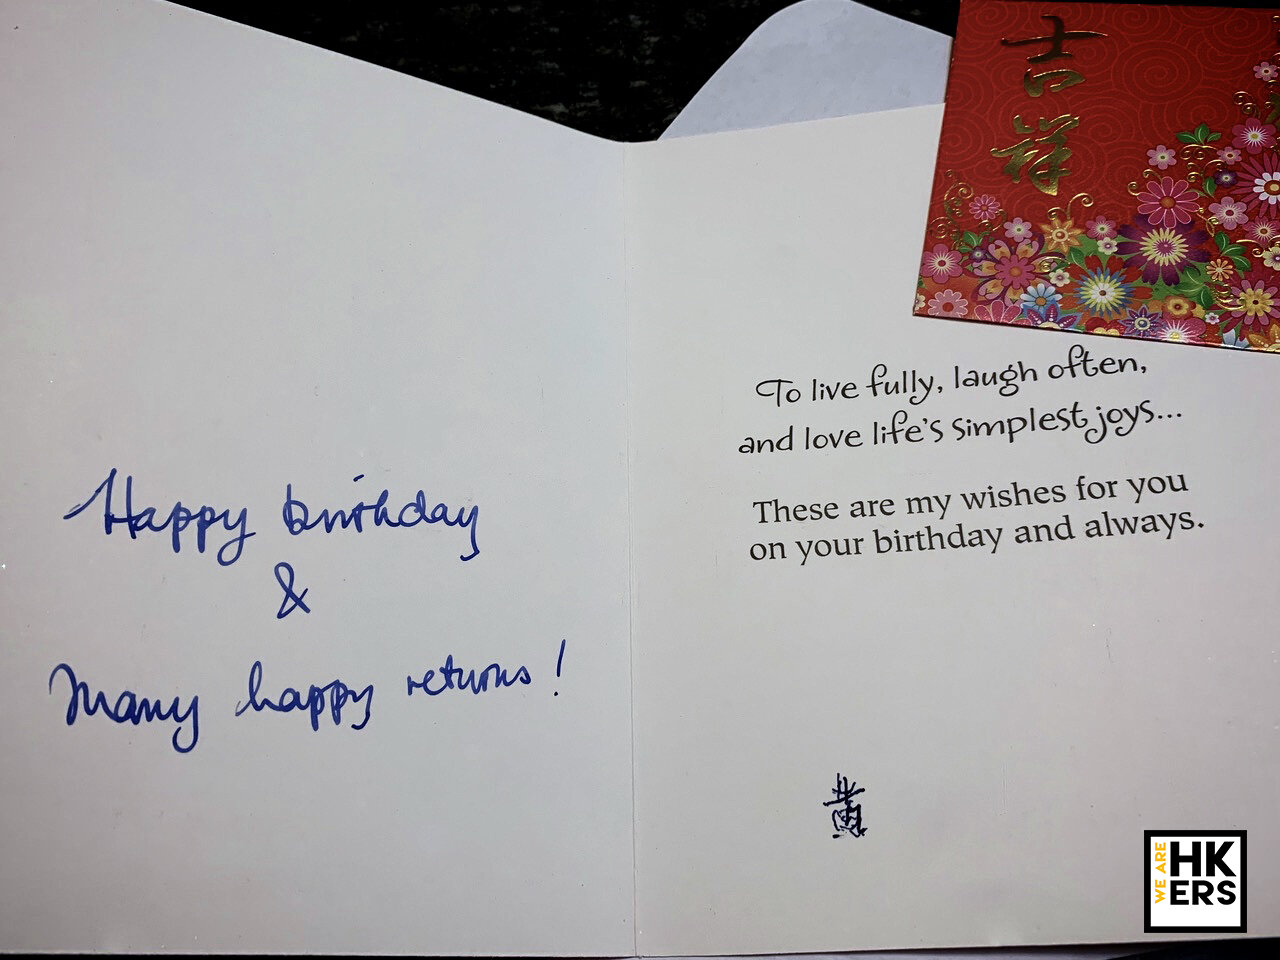 吉祥
Happy birthday
&
Many happy returns!
To live fully, laugh often,
and love life's simplest joys...
These are my wishes for you
on your birthday and always.
WE ARE
HK
ERS